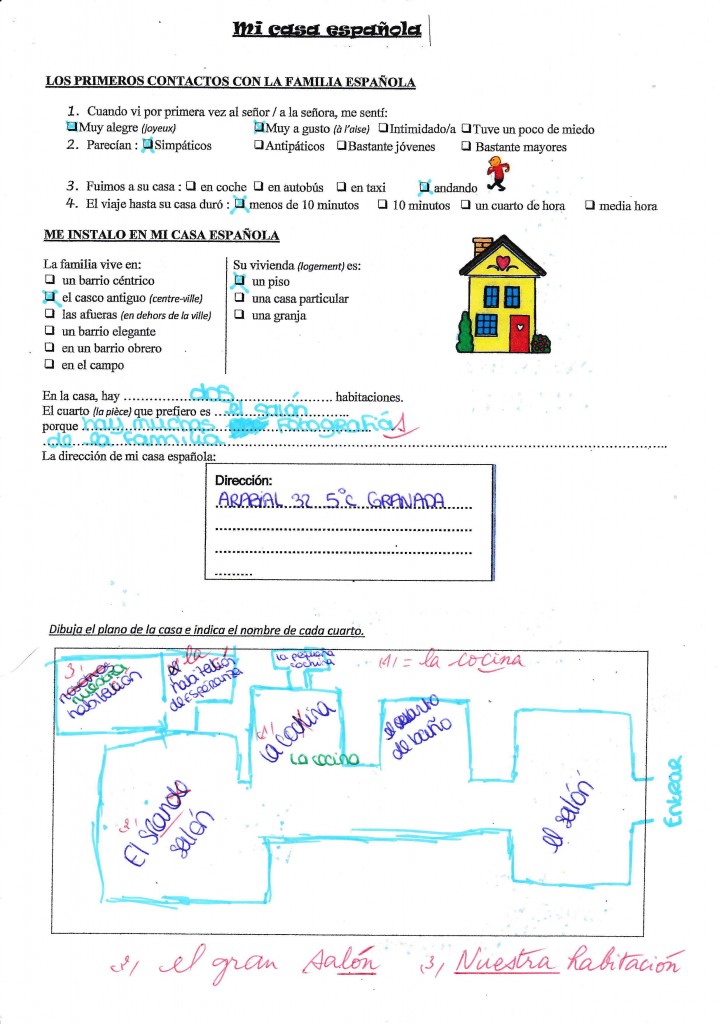 Mi casa española
LOS PRIMEROS CONTACTOS CON LA FAMILIA ESPAÑOLA
1. Cuando vi por primera vez al señor / a la señora, me sentí:
Muy alegre (joyeux) Muy a gusto (à l'aise) Intimidado/a Tuve un poco de miedo
2. Parecían : Simpáticos Antipáticos Bastante jóvenes Bastante mayores
3. Fuimos a su casa : en coche en autobús en taxi andando
4. El viaje hasta su casa duró : menos de 10 minutos 10 minutos un cuarto de hora media hora
ME INSTALO EN MI CASA ESPAÑOLA
La familia vive en:
un barrio céntrico
el casco antiguo (centre-ville)
las afueras (en dehors de la ville)
un barrio elegante
en un barrio obrero
en el campo
Su vivienda (logement) es:
un piso
una casa particular
una granja
En la casa, hay dos habitaciones.
El cuarto (la pièce) que prefiero es el salón
porque hay muchas fotografiás
de la familia
La dirección de mi casa española:
Dirección:
ARABIAL 32 5°C GRANADA
Dibuja el plano de la casa e indica el nombre de cada cuarto.
3) nuestra
habitación
la
habitación
de Esperanza
la pequeña
cochina
1) = la cocina
1) la cochina
la cocina
el cuarto
de baño
2) El grande
salón
el salón
Entrar
2) el gran salón 3) Nuestra habitación